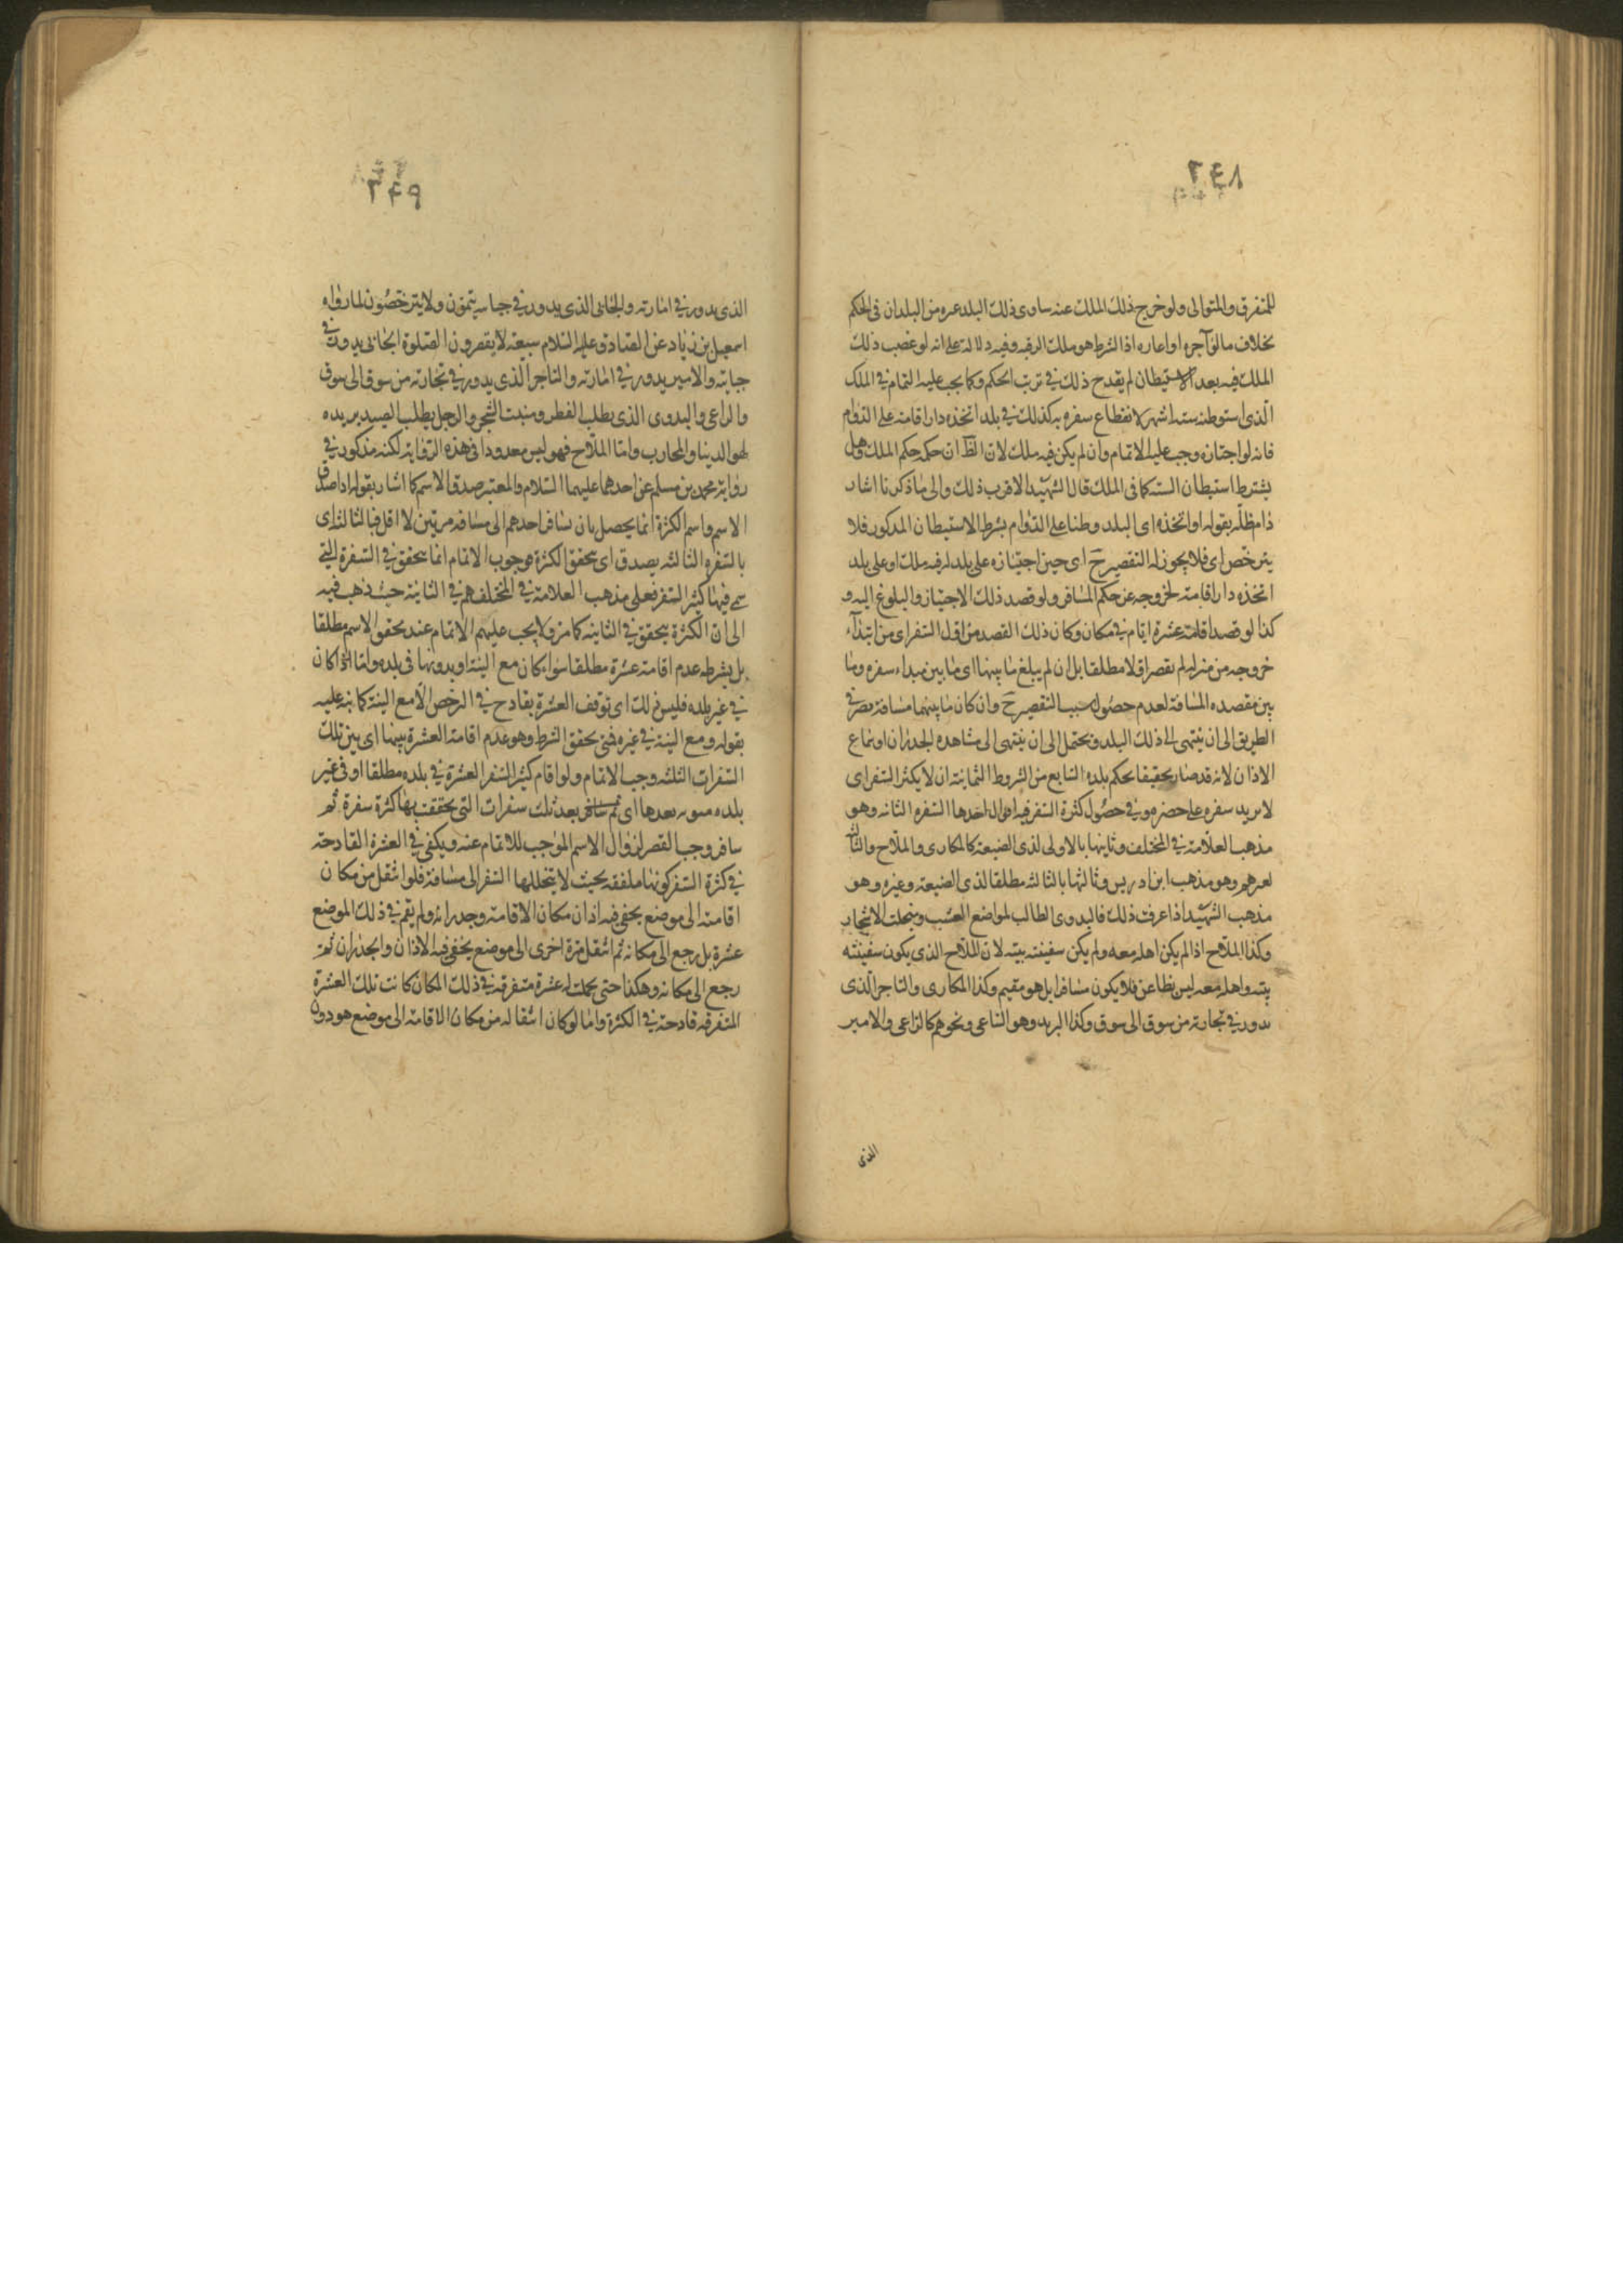 ٢٤٨
للمتفرق والمتوالى ولو خرج ذلك الملك عنه ساوى ذلك البلد غيره من البلدان فى الحكم
بخلاف ما لو آجره او اعاره اذ الشرط هو ملك الرقبه وفيه دلالة على انه لو غصب ذلك
الملك فيه بعد الاستيطان لم يقدح ذلك في ترتب الحكم وكما يجب عليه التمام في الملك
الذى استوطنه ستة اشهر لانقطاع سفره به كذلك في بلد اتخذه دار اقامته على الدوام
فانه لو اجتازه وجب عليه الاتمام وان لم يكن فيه ملك لان الظ ان حكمه حكم الملك وهل
يشترط استيطان الستة كما فى الملك قال الشهيد الاقرب ذلك والى ما ذكرنا اشار
دام ظلّه بقوله او اتخذه اى البلد وطنا على الدوام بشرط الاستيطان المذكور فلا
يترخص اى فلا يجوز له التقصير ح اى حين اجتيازه على بلد له فيه ملك او على بلد
اتخذه دار اقامته لخروجه عن حكم المسافر ولو قصد ذلك الاجتياز والبلوغ اليه و
كذا لو قصد اقامة عشرة ايام في مكان وكان ذلك القصد من اول السفر اى من ابتداء
خروجه من منزله لم يقصر اولا مطلقا بل ان لم يبلغ ما بينها اى ما بين مبداء سفره وما
بين مقصده المسافة لعدم حصول سبب التقصير ح وان كان ما بينهما مسافة قصر في
الطريق الى ان ينتهى الى ذلك البلد ويحتمل الى ان ينتهى الى مشاهده الجدران او سماع
الاذان لانه قد صار بحقيقا بحكم بلده السابع من الشروط الثمانية ان لا يكثر السفر اى
لا يزيد سفره على حضره وفي حصول كثرة السفر فيه اقوال احدها السفره الثانيه وهو
مذهب العلامة في المختلف وثانيها بالاولى لذى الصنيعة كالمكارى والملاح والثا
لغيرهم وهو مذهب ابن ادريس وثالثها بالثالثه مطلقا لذى الصنيعة وغيره وهو
مذهب الشهيد اذا عرفت ذلك فالبدوى الطالب لمواضع العشب ومنبت الاشجار
وكذا الملاح اذا لم يكن اهله معه ولم يكن سفينته بيته لان الملاح الذى يكون سفينته
بيته واهله معه ليس بظاعن فلا يكون مسافرا بل هو مقيم وكذا المكارى والتاجر الذى
يدور في تجارته من سوق الى سوق وكذا البريد وهو الساعى ونحوهم كالراعى والامير
الذى
٢٤٩
الذى يدور في امارته والجابى الذى يدور في جبايته يتمون ولا يترخصون لما رواه
اسمعيل بن زياد عن الصادق عليه السلام سبعة لا يقصرون الصلوة الجابى يدور في
جبايته والامير يدور في امارته والتاجر الذى يدور في تجارته من سوق الى سوق
والراعى والبدوى الذى يطلب القطر ومنبت الشجر والرجل يطلب الصيد يريد به
لهو الدينا والمحارب واما الملاح فهو ليس معدودا فى هذه الرواية لكنه مذكور في
رواية محمد بن مسلم عن احدهما عليهما السلام والمعتبر صدق الاسم كما اشار بقوله اذا صدق
الاسم واسم الكثرة انما يحصل بان يسافر احدهم الى مسافة مرتين لا اقل فبالثالثة اى
بالسفره الثالثه يصدق اى يتحقق الكثرة فوجوب الاتمام انما يتحقق في السفرة التي
سمى فيها كثير السفر فعلى مذهب العلامة في المختلف هم في الثانية حيث ذهب فيه
الى ان الكثرة يتحقق في الثانيه كما مر ولا يجب عليهم الاتمام عند تحقق الاسم مطلقا
بل بشرط عدم اقامة عشرة مطلقا سواء كان مع النية او بدونها فى بلده واما اذا كان
في غير بلده فليس ذلك اى توقف العشرة بقادح في الرخص الا مع النية كما نبه عليه
بقوله ومع النية في غيره فمتى تحقق الشرط وهو عدم اقامة العشرة بينها اى بين تلك
السفرات الثلثه وجب الاتمام ولو اقام كثير السفر العشرة في بلده مطلقا او فى غير
بلده بعدها اى ثم سافر بعد ثلث سفرات التى تحققت بها كثرة سفرة ثم
سافر وجب القصر لزوال الاسم الموجب للاتمام عنه ويكفى في العشرة القادحة
في كثرة السفر كونها ملفقه بحيث لا يتخللها السفر الى مسافة فلو انتقل من مكان
اقامته الى موضع يخفى فيه اذان مكان الاقامة وجدرانه ولم يقم في ذلك الموضع
عشرة بل رجع الى مكانه ثم انتقل مرة اخرى الى موضع يخفى فيه الاذان والجدران ثم
رجع الى مكانه وهكذا حتى يحملت له عشرة متفرقة في ذلك المكان كانت تلك العشرة
المتفرقه قادحة في الكثرة واما لو كان انتقاله من مكان الاقامة الى موضع هو دون